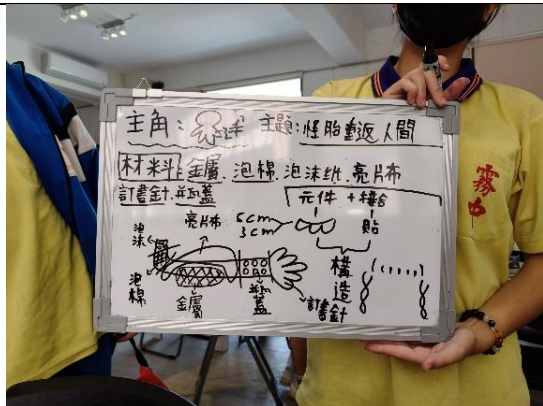 主角: 主題:怪胎重返人間
材料:金屬、泡棉、泡沫紙、亮片布
訂書針、瓶蓋
元件+接合
泡沫 亮片布 5cm
3cm 貼
構造
泡棉 金屬 瓶蓋 訂書針
霧中